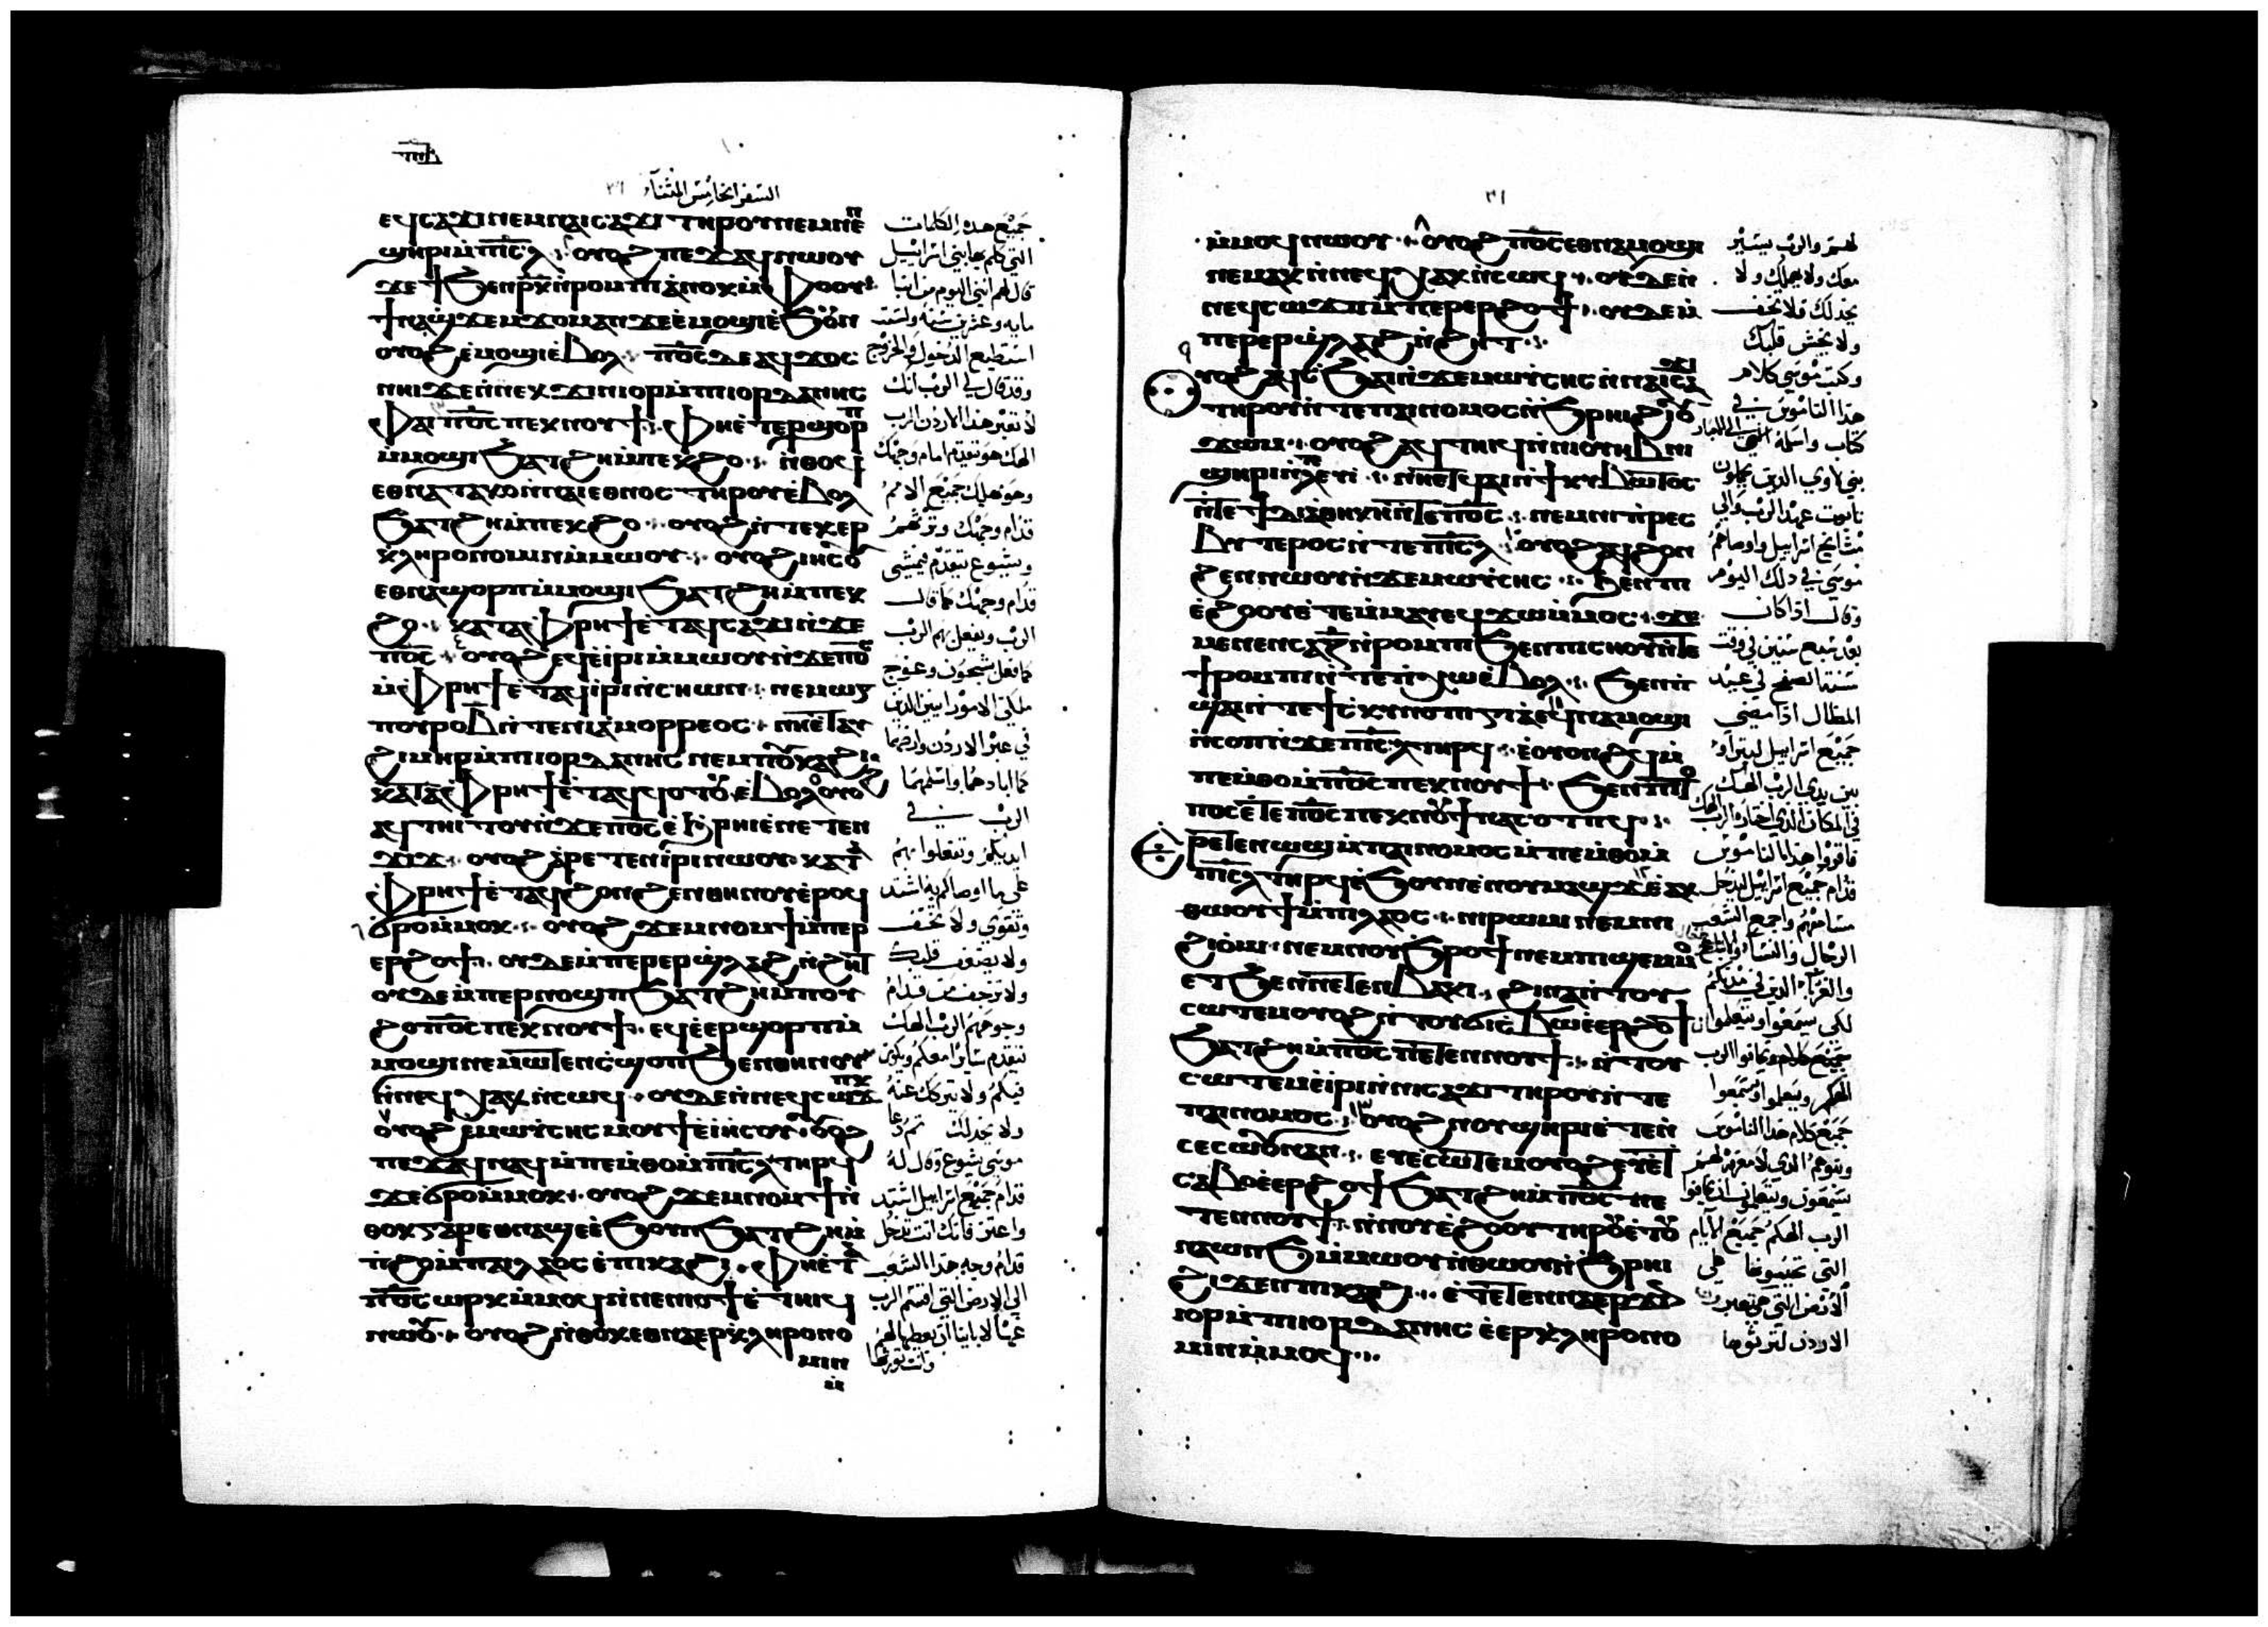 ١٠
السفر الخامس المثناء ٣١
ⲉϥⲥⲁϫⲓ ⲛⲉⲙ ⲛⲁⲓⲥⲁϫⲓ ⲧⲏⲣⲟⲩ ⲛⲉⲙ ⲛⲉⲛ
ϣⲏⲣⲓ ⲙ̀ⲡⲓⲥ̅ⲗ̅ ⲟⲩⲟϩ ⲡⲉϫⲁϥ ⲛⲱⲟⲩ
ϫⲉ ϯϧⲉⲛ ⲣ̅ⲕ̅ ⲛ̀ⲣⲟⲙⲡⲓ ⲁⲛⲟⲕ ⲙ̀ⲫⲟⲟⲩ
ϯⲛⲁϣϫⲉⲙϫⲟⲙ ⲁⲛ ϫⲉ ⲉ̀ⲙⲟϣⲓ ⲉ̀ϧⲟⲩⲛ
ⲟⲩⲟϩ ⲉ̀ⲙⲟϣⲓ ⲉ̀ⲃⲟⲗ ⲡ̅ⲟ̅ⲥ̅ ⲇⲉ ⲁϥϫⲟⲥ
ⲛⲏⲓ ϫⲉ ⲛ̀ⲛⲉⲕϫⲓⲛⲓⲟⲣ ⲙ̀ⲡⲓⲟⲣⲇⲁⲛⲏⲥ
ⲫⲁⲓ ⲡ̅ⲟ̅ⲥ̅ ⲡⲉⲕⲛⲟⲩϯ ⲫⲏⲉ̀ⲧⲉⲣϣⲟⲣⲡ
ⲙ̀ⲙⲟϣⲓ ϧⲁⲧϩⲏ ⲙ̀ⲡⲉⲕϩⲟ ⲛ̀ⲑⲟϥ
ⲉⲑⲛⲁⲧⲁⲕⲟ ⲛ̀ⲛⲁⲓⲉⲑⲛⲟⲥ ⲧⲏⲣⲟⲩ ⲉ̀ⲃⲟⲗ
ϧⲁⲧϩⲏ ⲙ̀ⲡⲉⲕϩⲟ ⲟⲩⲟϩ ⲛ̀ⲧⲉⲕⲉⲣ
ⲕ̀ⲗⲏⲣⲟⲛⲟⲙⲓⲛ ⲙ̀ⲙⲱⲟⲩ ⲟⲩⲟϩ ⲓⲏⲥⲟⲩ
ⲉⲑⲛⲁϣⲟⲣⲡ ⲙ̀ⲙⲟϣⲓ ϧⲁⲧϩⲏ ⲙ̀ⲡⲉⲕ
ϩⲟ ⲕⲁⲧⲁ ⲫⲣⲏϯ ⲉ̀ⲧⲁϥⲥⲁϫⲓ ⲛ̀ϫⲉ
ⲡ̅ⲟ̅ⲥ̅ ⲟⲩⲟϩ ⲉϥⲉ̀ⲓ̀ⲣⲓ ⲙ̀ⲙⲱⲟⲩ ⲛ̀ϫⲉ ⲡ̅ⲟ̅ⲥ̅
ⲙ̀ⲫⲣⲏϯ ⲉ̀ⲧⲁϥⲓ̀ⲣⲓ ⲛ̀ⲥⲏⲱⲛ ⲛⲉⲙ ⲱⲅ
ⲡⲟⲩⲣⲟ ⲃ̅ ⲛ̀ⲧⲉ ⲛⲓⲁ̀ⲙⲟⲣⲣⲉⲟⲥ ⲛⲏⲉ̀ⲧⲁⲩ
ϩⲓⲙⲏⲣ ⲙ̀ⲡⲓⲟⲣⲇⲁⲛⲏⲥ ⲛⲉⲙ ⲡⲟⲩⲕⲁϩⲓ
ⲕⲁⲧⲁ ⲫⲣⲏϯ ⲉ̀ⲧⲁϥϥⲟⲧⲟⲩ ⲉ̀ⲃⲟⲗ ⲟⲩⲟϩ
ⲁϥⲧⲏⲓⲧⲟⲩ ⲛ̀ϫⲉ ⲡ̅ⲟ̅ⲥ̅ ⲉ̀ϧⲣⲏⲓ ⲉ̀ⲛⲉⲧⲉⲛ
ϫⲓϫ ⲟⲩⲟϩ ⲁ̀ⲣⲉⲧⲉⲛⲓ̀ⲣⲓ ⲛⲱⲟⲩ ⲕⲁⲧⲁ
ⲫⲣⲏϯ ⲉ̀ⲧⲁϥϩⲟⲛϩⲉⲛ ⲑⲏⲛⲟⲩ ⲉ̀ⲣⲟϥ
ϭⲣⲟ ⲙ̀ⲙⲟⲕ ⲟⲩⲟϩ ϫⲉⲙⲛⲟⲙϯ ⲙ̀ⲡⲉⲣ
ⲉⲣϩⲟϯ ⲟⲩⲇⲉ ⲙ̀ⲡⲉⲣⲉⲣϣⲗⲁϩ ⲛ̀ϩⲏⲧ
ⲟⲩⲇⲉ ⲙ̀ⲡⲉⲣⲛⲟϣⲡ ϧⲁⲧϩⲏ ⲙ̀ⲡⲟⲩ
ϩⲟ ⲡ̅ⲟ̅ⲥ̅ ⲡⲉⲕⲛⲟⲩϯ ⲉϥⲉ̀ⲉⲣϣⲟⲣⲡ ⲙ̀
ⲙⲟϣⲓ ⲛⲉⲙⲱⲧⲉⲛ ⲉϥϣⲟⲡ ϧⲉⲛ ⲑⲏⲛⲟⲩ
ⲛ̀ⲛⲉϥⲭⲁⲕ ⲛ̀ⲥⲱϥ ⲟⲩⲇⲉ ⲛ̀ⲛⲉϥⲥⲱϫⲡⲕ
ⲟⲩⲟϩ ⲉ̀ ⲙⲱⲩ̈ⲥⲏⲥ ⲙⲟⲩϯ ⲉ̀ⲓⲏⲥⲟⲩ ⲟⲩⲟϩ
ⲡⲉϫⲁϥ ⲛⲁϥ ⲙ̀ⲡⲉⲙ̀ⲑⲟ ⲙ̀ⲡⲓⲥ̅ⲗ̅ ⲧⲏⲣϥ
ϫⲉ ϭⲣⲟ ⲙ̀ⲙⲟⲕ ⲟⲩⲟϩ ϫⲉⲙⲛⲟⲙϯ ⲛ̀
ⲑⲟⲕ ⲅⲁⲣ ⲉⲑⲛⲁϣⲉ ⲉ̀ϧⲟⲩⲛ ϧⲁⲧϩⲏ ⲙ̀
ⲡ̀ϩⲟ ⲙ̀ⲡⲁⲓⲗⲁⲟⲥ ⲉ̀ⲡⲓⲕⲁϩⲓ ⲫⲏⲉ̀ⲧⲁ
ⲡ̅ⲟ̅ⲥ̅ ⲱⲣⲕ ⲙ̀ⲙⲟϥ ⲛ̀ⲛⲉⲛⲓⲟϯ ⲉ̀ⲧⲏⲓϥ
ⲛⲱⲟⲩ ⲟⲩⲟϩ ⲛ̀ⲑⲟⲕ ⲉⲑⲛⲁⲉⲣⲕ̀ⲗⲏⲣⲟⲛⲟ
ⲙⲓⲛ
ⲙ̀
جميع هده الكلمات
التي كلم بها بني اسراييل
قال لهم انني اليوم من ابنا
مايه وعشرين سنه ولست
استطيع الدخول والخروج
وقد قال لي الرب انك
لا تعبر هدا الاردن الرب
الهك هو يتقدم امام وجهك
وهو يهلك جميع الامم
قدام وجهك وترثهم
ويشوع يتقدم يمشي
قدام وجهك كما قال
الرب ويفعل بهم الرب
كما فعل بسيحون وعوج
ملكي الامورانيين الدين
في عبر الاردن وارضهما
كما ابادهما واسلمهما
الرب في
ايديكم وتفعلوا بهم
على ما اوصاكم به اشتد
وتقوي ولا تخف
ولا يضعف قلبك
ولا ترجف من قدام
وجوههم الرب الهك
يتقدم سايرا معكم ويكون
فيكم ولا يتركك عنه
ولا يخدلك تم دعا
موسى يشوع وقال له
قدام جميع اسراييل اشتد
واعتز فانك انت تدخل
قدام وجه هدا الشعب
الى الارض التي اقسم الرب
عنها لابائنا ان يعطيها لهم
وانت تورثها
٣١
ⲙ̀ⲙⲟϥ ⲛⲱⲟⲩ ⲟⲩⲟϩ ⲡ̅ⲟ̅ⲥ̅ ⲉⲑⲛⲁⲙⲟϣⲓ
ⲛⲉⲙⲁⲕ ⲛ̀ⲛⲉϥⲭⲁⲕ ⲛ̀ⲥⲱϥ ⲟⲩⲇⲉ ⲛ̀
ⲛⲉϥⲥⲱϫⲡ ⲙ̀ⲡⲉⲣⲉⲣϩⲟϯ ⲟⲩⲇⲉ ⲙ̀
ⲡⲉⲣⲉⲣϣⲗⲁϩ ⲛ̀ϩⲏⲧ
ⲟⲩⲟϩ ⲁϥⲥϧⲁⲓ ⲛ̀ϫⲉ ⲙⲱⲩ̈ⲥⲏⲥ ⲛ̀ⲛⲁⲓⲥⲁϫⲓ
ⲧⲏⲣⲟⲩ ⲛ̀ⲧⲉ ⲡⲁⲓⲛⲟⲙⲟⲥ ⲛ̀ϧⲣⲏⲓ ϩⲓ ⲟⲩ
ϫⲱⲙ ⲟⲩⲟϩ ⲁϥⲧⲏⲓϥ ⲛ̀ⲛⲓⲟⲩⲏⲃ ⲛⲓ
ϣⲏⲣⲓ ⲛ̀ⲗⲉⲩⲓ ⲛⲏⲉⲧϥⲁⲓ ⲛ̀ϯⲕⲩⲃⲱⲧⲟⲥ
ⲛ̀ⲧⲉ ϯⲇⲓⲁⲑⲏⲕⲏ ⲛ̀ⲧⲉ ⲡ̅ⲟ̅ⲥ̅ ⲛⲉⲙ ⲛⲓⲡ̀ⲣⲉⲥ
ⲃⲩⲧⲉⲣⲟⲥ ⲛ̀ⲧⲉ ⲡⲓⲥ̅ⲗ̅ ⲟⲩⲟϩ ⲁϥϩⲟⲛ
ϩⲉⲛ ⲛⲱⲟⲩ ⲛ̀ϫⲉ ⲙⲱⲩ̈ⲥⲏⲥ ϧⲉⲛ ⲡⲓ
ⲉ̀ϩⲟⲟⲩ ⲉ̀ⲧⲉⲙⲙⲁⲩ ⲉϥϫⲱ ⲙ̀ⲙⲟⲥ ϫⲉ
ⲙⲉⲛⲉⲛⲥⲁ ⲍ̅ ⲛ̀ⲣⲟⲙⲡⲓ ϧⲉⲛ ⲡⲓⲥⲛⲟⲩ ⲛ̀ⲧⲉ
ϯⲣⲟⲙⲡⲓ ⲛ̀ⲧⲉ ⲡⲓⲭⲱ ⲉ̀ⲃⲟⲗ ϧⲉⲛ ⲡ
ϣⲁⲓ ⲛ̀ⲧⲉ ϯⲥⲕⲩⲛⲟⲡⲓⲅⲓⲁ ⲉϥⲛⲁⲙⲟϣⲓ
ⲛ̀ⲥⲟⲡ ⲛ̀ϫⲉ ⲡⲓⲥ̅ⲗ̅ ⲧⲏⲣϥ ⲉ̀ⲟⲩⲟⲛϩϥ ⲙ̀
ⲡⲉⲙ̀ⲑⲟ ⲙ̀ⲡ̅ⲟ̅ⲥ̅ ⲡⲉⲕⲛⲟⲩϯ ϧⲉⲛ ⲡⲓⲧⲟ
ⲡⲟⲥ ⲉ̀ⲧⲉ ⲡ̅ⲟ̅ⲥ̅ ⲡⲉⲕⲛⲟⲩϯ ⲛⲁⲥⲟⲧⲡϥ
ⲉ̀ⲣⲉⲧⲉⲛⲱϣ ⲙ̀ⲡⲁⲓⲛⲟⲙⲟⲥ ⲙ̀ⲡⲉⲙ̀ⲑⲟ ⲙ̀
ⲡⲓⲥ̅ⲗ̅ ⲧⲏⲣϥ ⲉ̀ϧⲟⲩⲛ ⲉ̀ⲛⲟⲩⲙⲁϣϫ
ⲑⲱⲟⲩϯ ⲙ̀ⲡⲓⲗⲁⲟⲥ ⲛⲓⲣⲱⲙⲓ ⲛⲉⲙ ⲛⲓ
ϩⲓⲟ̀ⲙⲓ ⲛⲉⲙ ⲛⲟⲩϧⲣⲟϯ ⲛⲉⲙ ⲡⲓϣⲉⲙⲙⲟ
ⲉⲧϧⲉⲛ ⲛⲉⲧⲉⲛⲃⲁⲕⲓ ϩⲓⲛⲁ ⲛ̀ⲧⲟⲩ
ⲥⲱⲧⲉⲙ ⲟⲩⲟϩ ⲛ̀ⲧⲟⲩϭⲓⲥⲃⲱ ⲉ̀ⲉⲣϩⲟϯ
ϧⲁⲧϩⲏ ⲙ̀ⲡ̅ⲟ̅ⲥ̅ ⲡⲉⲧⲉⲛⲛⲟⲩϯ ⲛ̀ⲧⲟⲩ
ⲥⲱⲧⲉⲙ ⲉ̀ⲓ̀ⲣⲓ ⲛ̀ⲛⲓⲥⲁϫⲓ ⲧⲏⲣⲟⲩ ⲛ̀ⲧⲉ
ⲡⲁⲓⲛⲟⲙⲟⲥ ⲟⲩⲟϩ ⲛⲟⲩϣⲏⲣⲓ ⲉ̀ⲧⲉⲛ
ⲥⲉⲥⲱⲟⲩⲛ ⲁⲛ ⲉⲩⲉ̀ⲥⲱⲧⲉⲙ ⲟⲩⲟϩ ⲉⲩⲉ̀ϭⲓ
ⲥⲃⲱ ⲉ̀ⲉⲣϩⲟϯ ϧⲁⲧϩⲏ ⲙ̀ⲡ̅ⲟ̅ⲥ̅ ⲡⲉ
ⲧⲉⲛⲛⲟⲩϯ ⲛ̀ⲛⲟⲩⲉ̀ϩⲟⲟⲩ ⲧⲏⲣⲟⲩ ⲉ̀ⲧⲟⲩ
ⲛⲁⲱⲛϧ ⲙ̀ⲙⲱⲟⲩ ⲛ̀ⲑⲱⲟⲩ ⲛ̀ϧⲣⲏⲓ
ϩⲓϫⲉⲛ ⲡⲓⲕⲁϩⲓ ⲉ̀ⲧⲉⲧⲉⲛⲛⲁⲉⲣϫⲓⲛ
ⲓⲟⲣ ⲙ̀ⲡⲓⲟⲣⲇⲁⲛⲏⲥ ⲉ̀ⲉⲣⲕ̀ⲗⲏⲣⲟⲛⲟ
ⲙⲓⲛ ⲙ̀ⲙⲟϥ
لهم والرب يسير
معك ولا يهملك ولا
يخدلك فلا تخف
ولا يخش قلبك
وكتب موسى كلام
هدا الناموس في
كتاب واسلمه الى الاحبار
بني لاوي الدين يحملون
تابوت عهد الرب والي
مشايخ اسراييل واوصاهم
موسى في دلك اليوم
وقال ادا كان
بعد سبع سنين في وقت
سنة الصفح في عيد
المظال ادا مضى
جميع اسراييل ليتراوا
بين يدي الرب الهك
في المكان الدي اختاره الرب الهك
فاقروا هدا الناموس
قدام جميع اسراييل ليدخل
مسامعهم واجمع الشعب
الرجال والنساء
والغرباء الدين في مدنكم
لكي يسمعوا ويتعلموا ان
جميع كلام ويخافوا الرب
الهكم ويعملوا ويسمعوا
جميع كلام هدا الناموس
وبنوهم الدي لا معرفة لهم
يسمعون ويتعلموا ان يخافوا
الرب الهكم جميع الايام
التي يحيونها على
الارض التي هم تعبرون
الاردن لترثوها